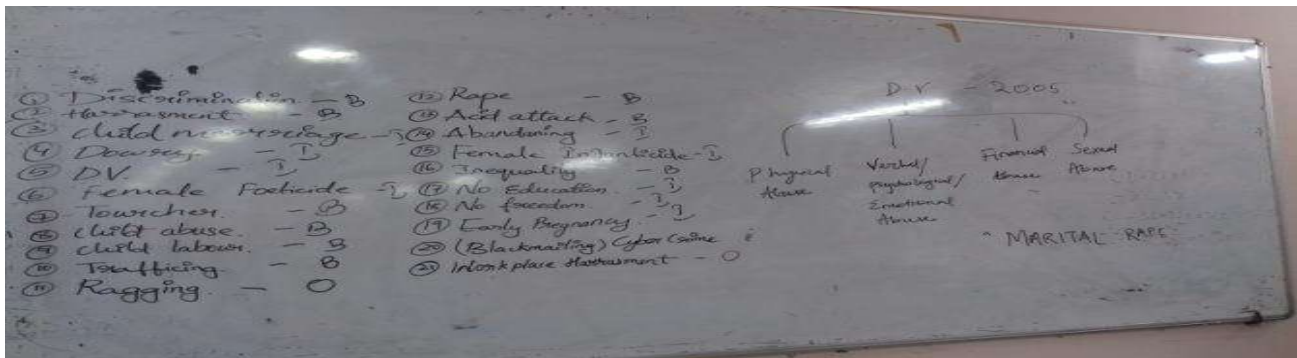 ① Discrimination. - B
② Harrasment - B
③ Child marriage - I
④ Dowry. - I
⑤ DV. - I
⑥ Female Foeticide - I
⑦ Tourcher. - B
⑧ Child abuse. - B
⑨ Child labour. - B
⑩ Trafficing. - B
⑪ Ragging. - O
⑫ Rape - B
⑬ Acid attack - B
⑭ Abandoning - I
⑮ Female Infanticide - I
⑯ Inequality - B
⑰ No Education. - I
⑱ No freedom. - I
⑲ Early Pregnancy. - I
⑳ (Blackmailing) Cyber Crime
㉑ Workplace Harrasment - O
D.V - 2005
Physical
Abuse
Verbal/
psychological/
Emotional
Abuse
Financial
Abuse
Sexual
Abuse
MARITAL RAPE